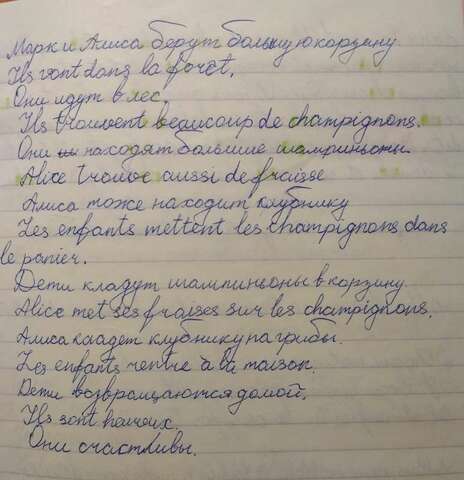 Марк и Алиса берут большую корзину
Ils vont dans la forêt.
Они идут в лес.
Ils trouvent beaucoup de champignons.
Они находят большие шампиньоны.
Alice trouve aussi de fraise
Алиса тоже находит клубнику
Les enfants mettent les champignons dans
le panier.
Дети кладут шампиньоны в корзину
Alice met ses fraises sur les champignons.
Алиса кладет клубнику на грибы.
Les enfants rentre à la maison.
Дети возвращаются домой.
Ils sont
Они счастливы.